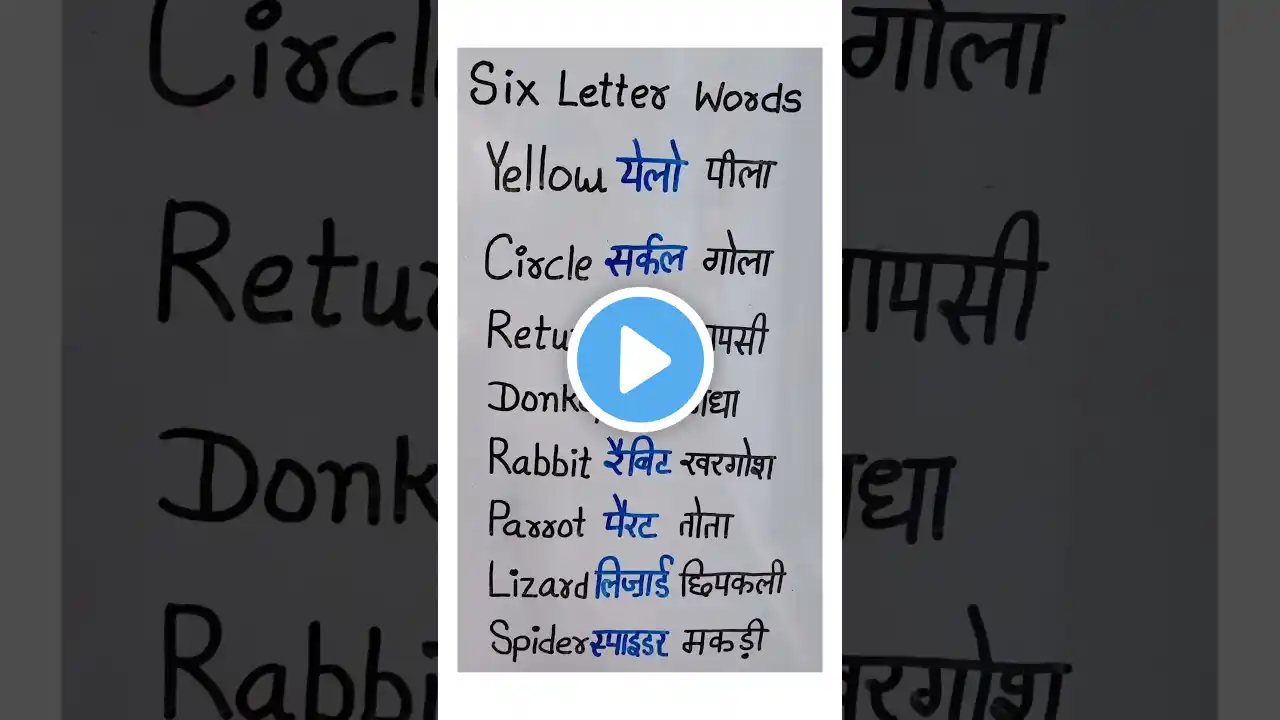 Six Letter Words
Yellow येलो पीला
Circle सर्कल गोला
Donkey
Rabbit रैबिट खरगोश
Parrot पैरट तोता
Lizard लिज़ार्ड छिपकली
Spider स्पाइडर मकड़ी